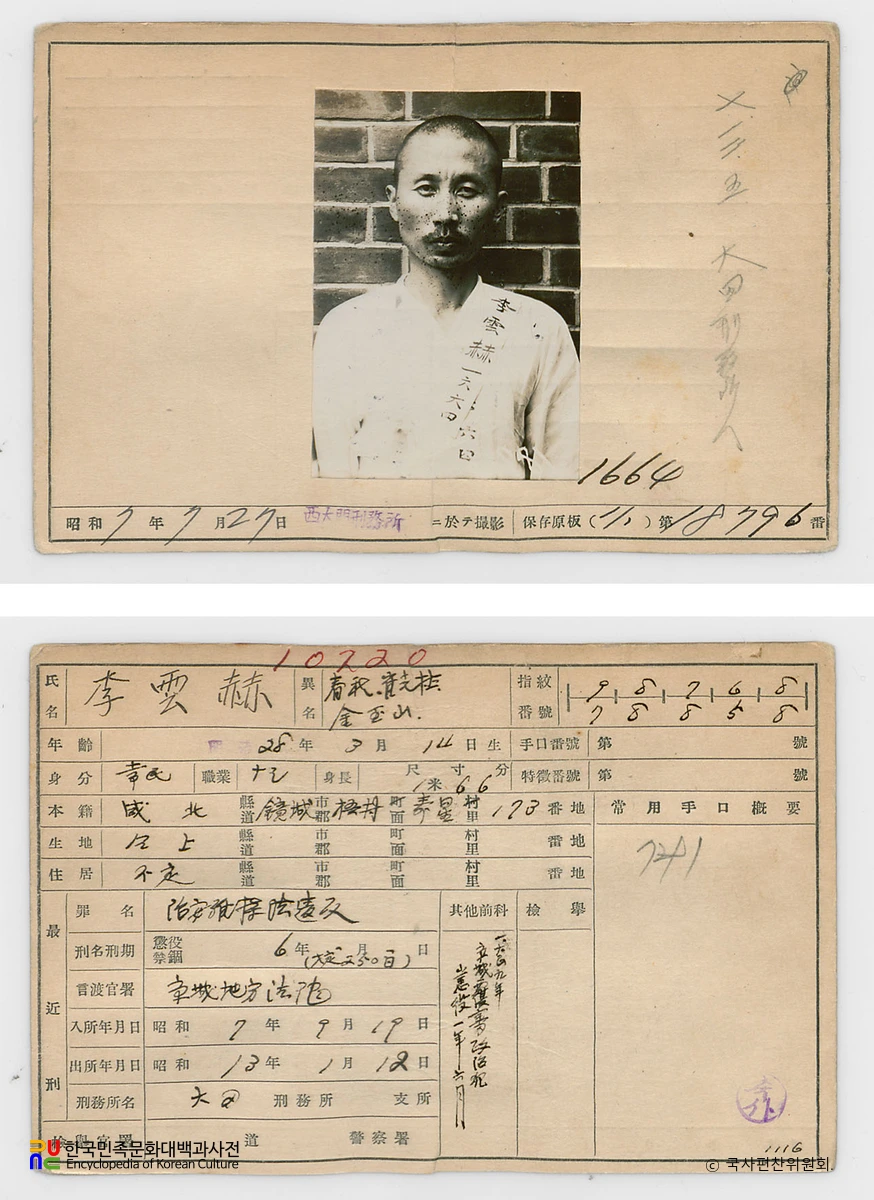 七.一二.五 大田刑務所
李雲赫
一六六四
1664
昭和7年7月27日 西大門刑務所 ニ於テ撮影 保存原板( )第18796番
10220
氏名 李雲赫 異名 金玉山 指紋番號 9 8 7 6 8
7 8 8 5 8
年齡 28年3月14日生 手口番號 第 號
身分 常民 職業 身長 尺寸分 1米66 特徵番號 第 號
本籍 咸北 縣道 鏡城 市郡 梧村 町面 壽星 村里 173番地 常用手口概要
生地 仝上 縣道 市郡 町面 村里 番地
住居 不定 縣道 市郡 町面 村里 番地
最近刑
罪名 治安維持法違反 其他前科 檢擧
刑名刑期 懲役 禁錮 6年 月 日
言渡官署 京城地方法院
入所年月日 昭和7年9月19日
出所年月日 昭和13年1月12日
刑務所名 大田 刑務所 支所
檢擧官署 道 警察署
懲役一年六月
1116
한국민족문화대백과사전
Encyclopedia of Korean Culture
© 국사편찬위원회